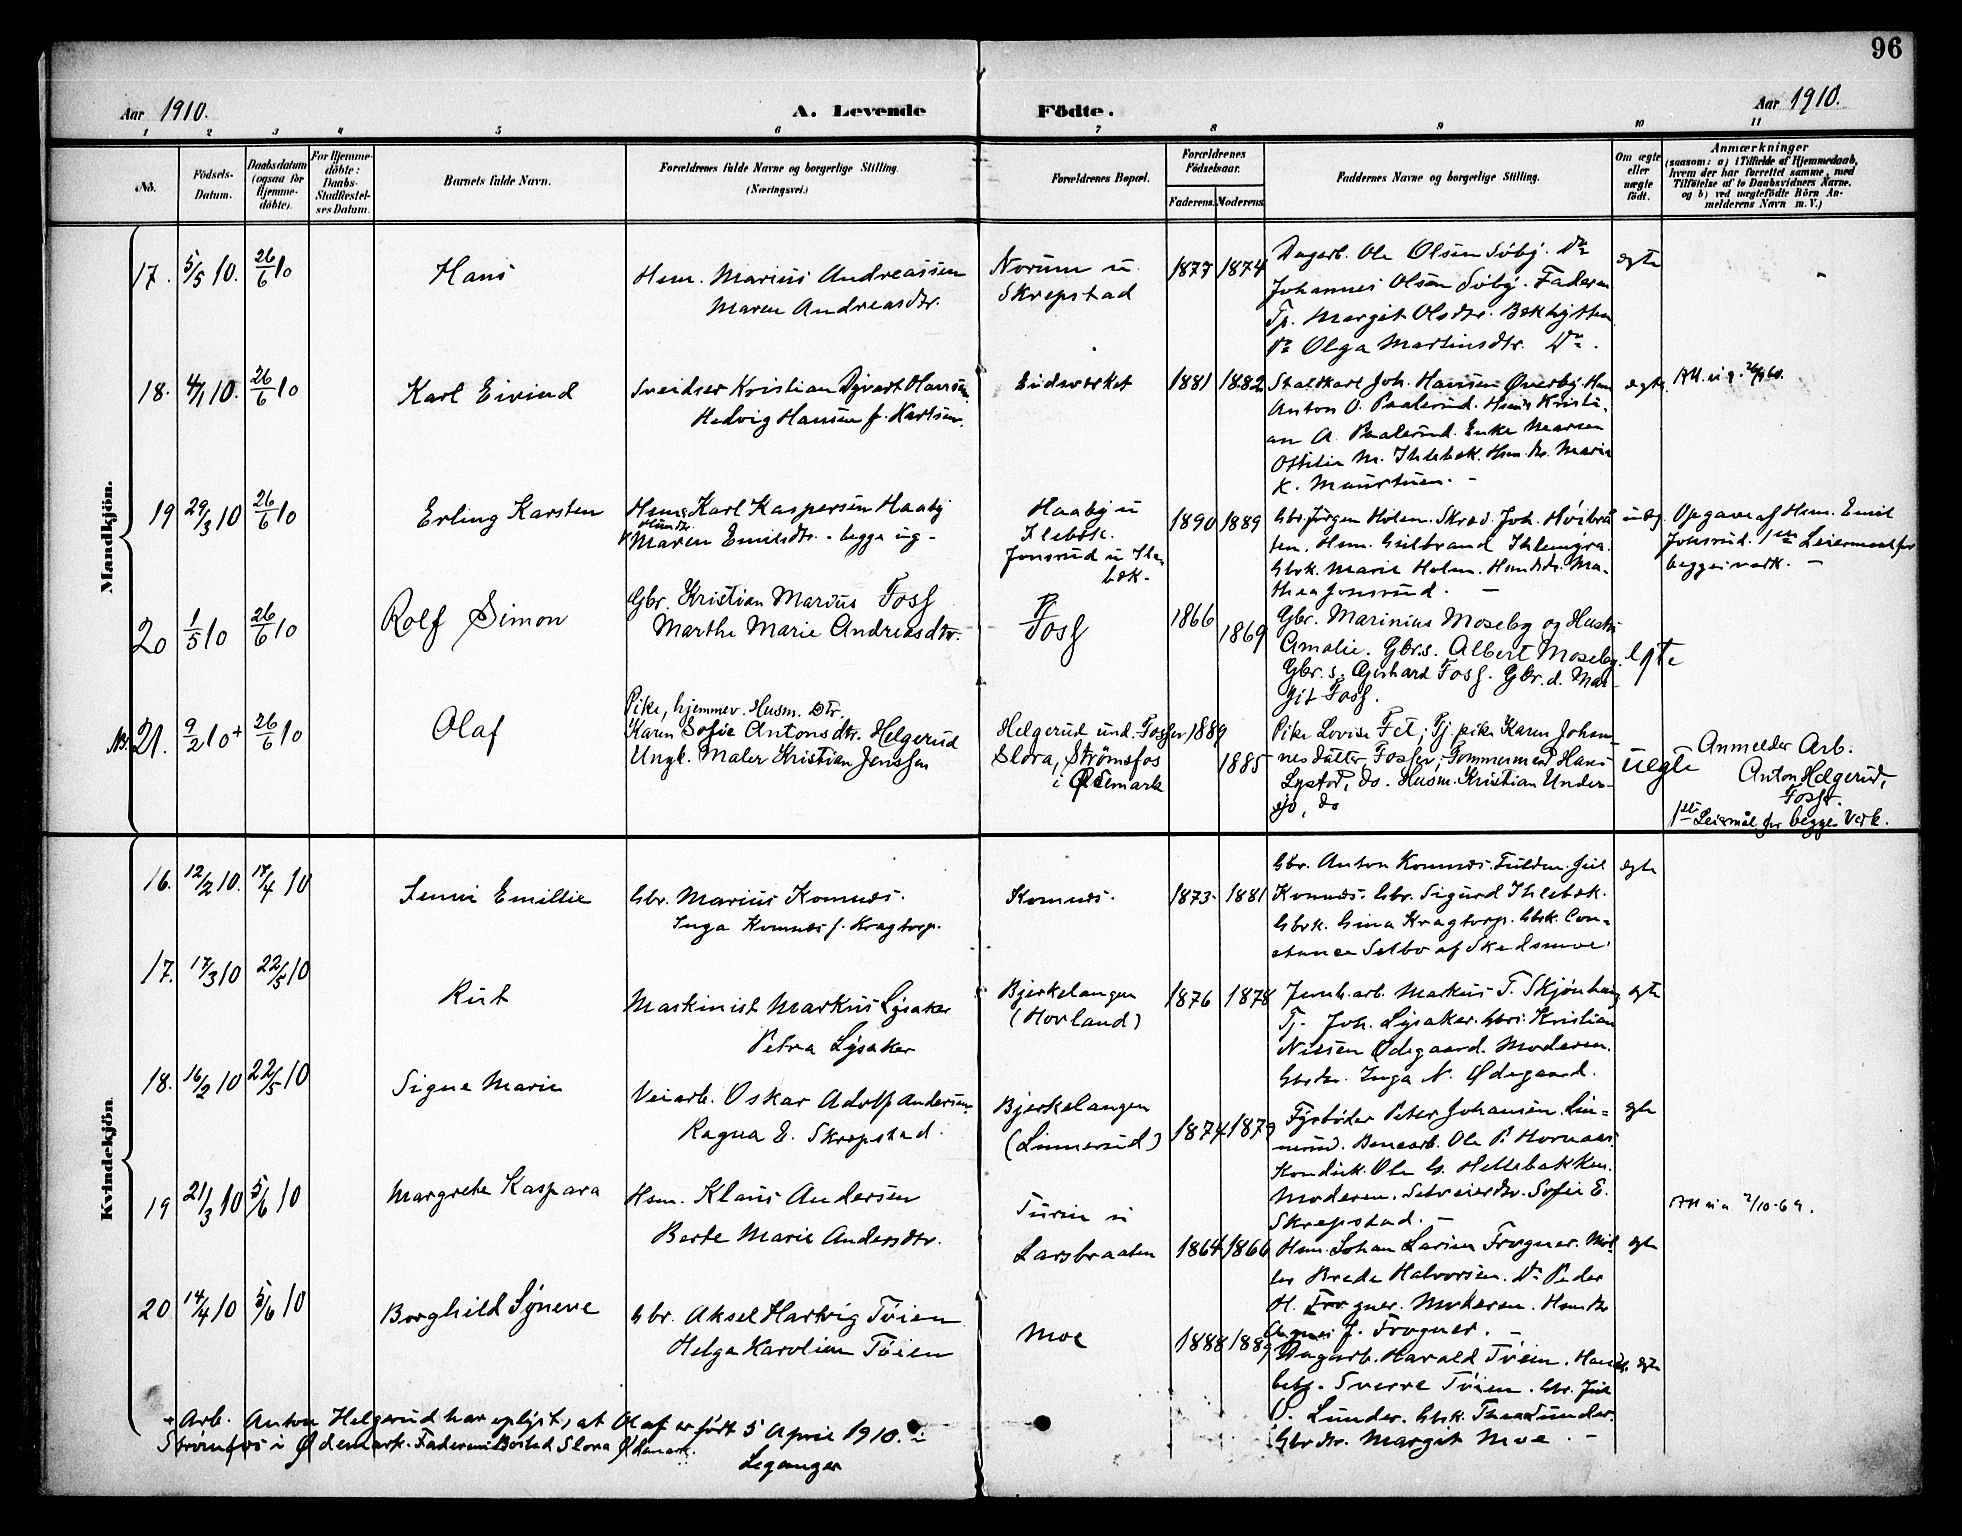 96
Aar 1910.
A. Levende Födte.
Aar 1910.
1 2 3 4 5 6 7 8 9 10 11
No.
Födsels-Datum.
Daabsdatum (ogsaa for Hjemme-döbte).
For Hjemme-döbte: Daabs-Stadfæstel-ses Datum.
Barnets fulde Navn.
Forældrenes fulde Navne og borgerlige Stilling.
(Næringsvei.)
Forældrenes Bopæl.
Forældrenes Födselsaar.
Faderens. Moderens.
Faddernes Navne og borgerlige Stilling.
Om ægte eller uægte födt.
Anmærkninger
(saasom: a) i Tilfælde af Hjemmedaab, hvem der har forrettet samme, med Tilföielse af to Daabsvidners Navne, og b) ved uægtefödte Börn An-melderens Navn m. V.)
Mandkjön.
17. 5/5 10. 26/6 10
Hans
Hsm. Marius Andreassen
Maren Andreasdtr.
Norum u.
Skrepstad
1877 1874
Dagarb. Ole Olsen Söby. Do
Johannes Olsen Söby. Faderen
Tp. Margit Olsdtr. Bækhytten
Do Olga Martinsdtr. Do.
egte
18. 4/1 10. 26/6 10
Karl Eivind
Sveidser Kristian Dyvart Hansen
Hedvig Hansen f. Karlsen.
Eidsverket
1881 1882
Staldkarl Joh. Hansen Överby. Hsm
Anton O. Paalerud. Hsms Kristi-
an A. Paalerud. Enke Maren
Ottilie M. Ihlebæk. Hsm.dtr. Marie
K. Maurtuen. -
egte
19 29/3 10 26/6 10
Erling Karsten
Hsms Karl Kaspersen Haaby
Hsmdtr.
Maren Emilsdtr. - begge ug -
Haaby u
Ilebæk.
Jonsrud u Ile
bæk.
1890 1889
Gbr. Jörgen Holen. Skræd. Joh. Höibraa
ten. Hsm. Gulbrand Ihlengra.
Gbrk. Marie Holen. Hsmdtr. Ma-
thea Jonsrud. -
uæg.
Opgave af Hsm. Emil
Jonsrud. 1ste Leiermaal for
begges verk. -
20 1/5 10 26/6 10
Rolf Simon
Gbr. Kristian Marius Foss
Marthe Marie Andreasdtr.
Foss
1866 1869
Gbr. Marinius Moseby og Hustru
Amalie. Gbr.s. Albert Moseby.
Gbr. s. Gerhard Foss. Gbr. d. Mar-
git Foss.
Egte
NB. 21. 9/2 10 + 26/6 10
Olaf
Pike, hjemmev. Husm. Dtr.
Karen Sofie Antonsdtr. Helgerud
Ungk. Maler Kristian Jenssen
Helgerud und. Fosser
Slora, Strömsfos
i Ödemark
1889 1885
Pike Lovise Fet; Tj. pike Karen Johan-
nesdatter, Fosser; Tömmermand Hans
Lystad, do. Husm. Kristian Under-
sjö, do
Uegte
Anmelder Arb.
Anton Helgerud,
Foss.
1ste Leiermål for begges Verk.
Kvindekjön.
16. 12/2 10. 17/4 10
Jenni Emillie
Gbr. Marius Komnæs.
Inga Komnæs f. Kragtorp.
Komnæs.
1873. 1881
Gbr. Anton Komnæs. Fuldm. Jul
Komnæs. Gbr. Sigurd Ihlebæk.
Gbrk. Gina Kragtorp. Gbrk. Con-
stance Selbo af Skedsmoe.
egte
17. 17/3 10 22/5 10
Rut
Maskinist Markus Lysaker
Petra Lysaker
Bjerkelangen
(Hovland)
1876 1878
Jernb.arb. Markus T. Skjönhaug
Tj. Joh. Lysaker. Gbrs. Kristian
Nilsen Ödegaard. Moderen.
Gbrdtr. Inga N. Ödegaard.
egte
18. 16/2 10 22/5 10
Signe Marie
Veiarb. Oskar Adolf Andersen
Ragna E. Skrepstad.
Bjerkelangen
(Linnerud)
1874 1879
Fyrböter Peter Johansen. Lin-
nerud. Banearb. Ole P. Hornaas
Kondrik. Ole G. Hellebakken.
Moderen. Selveierdtr. Sofie E.
Skrepstad. -
egte
19 21/3 10 5/6 10
Margrete Kaspara
Hsm. Klaus Andersen
Berte Marie Andersdtr.
Turin u
Larsbraaten
1864 1866
Hsm. Johan Larsen Frogner. Möl
ler Brede Halvorsen. Do Peder
H. Frogner. Moderen. Hsmdtr
Agnes J. Frogner. -
egte
20 14/4 10 5/6 10
Borghild Syneve
Gbr. Aksel Hartvig Töien
Helga Karoline Töien
Moe
1888 1889
Dagarb. Harald Töien. Handels
betj. Sverre Töien. Gbr. Jul
P. Lunder. Gbrk. Thea Lunder.
Gbrdtr. Margit Moe. -
egte
+ Arb. Anton Helgerud har oplyst, at Olaf er födt 5 April 1910. i
Strömfos i Ödemark. Faderens Bosted Slora Ödemark.
Leganger